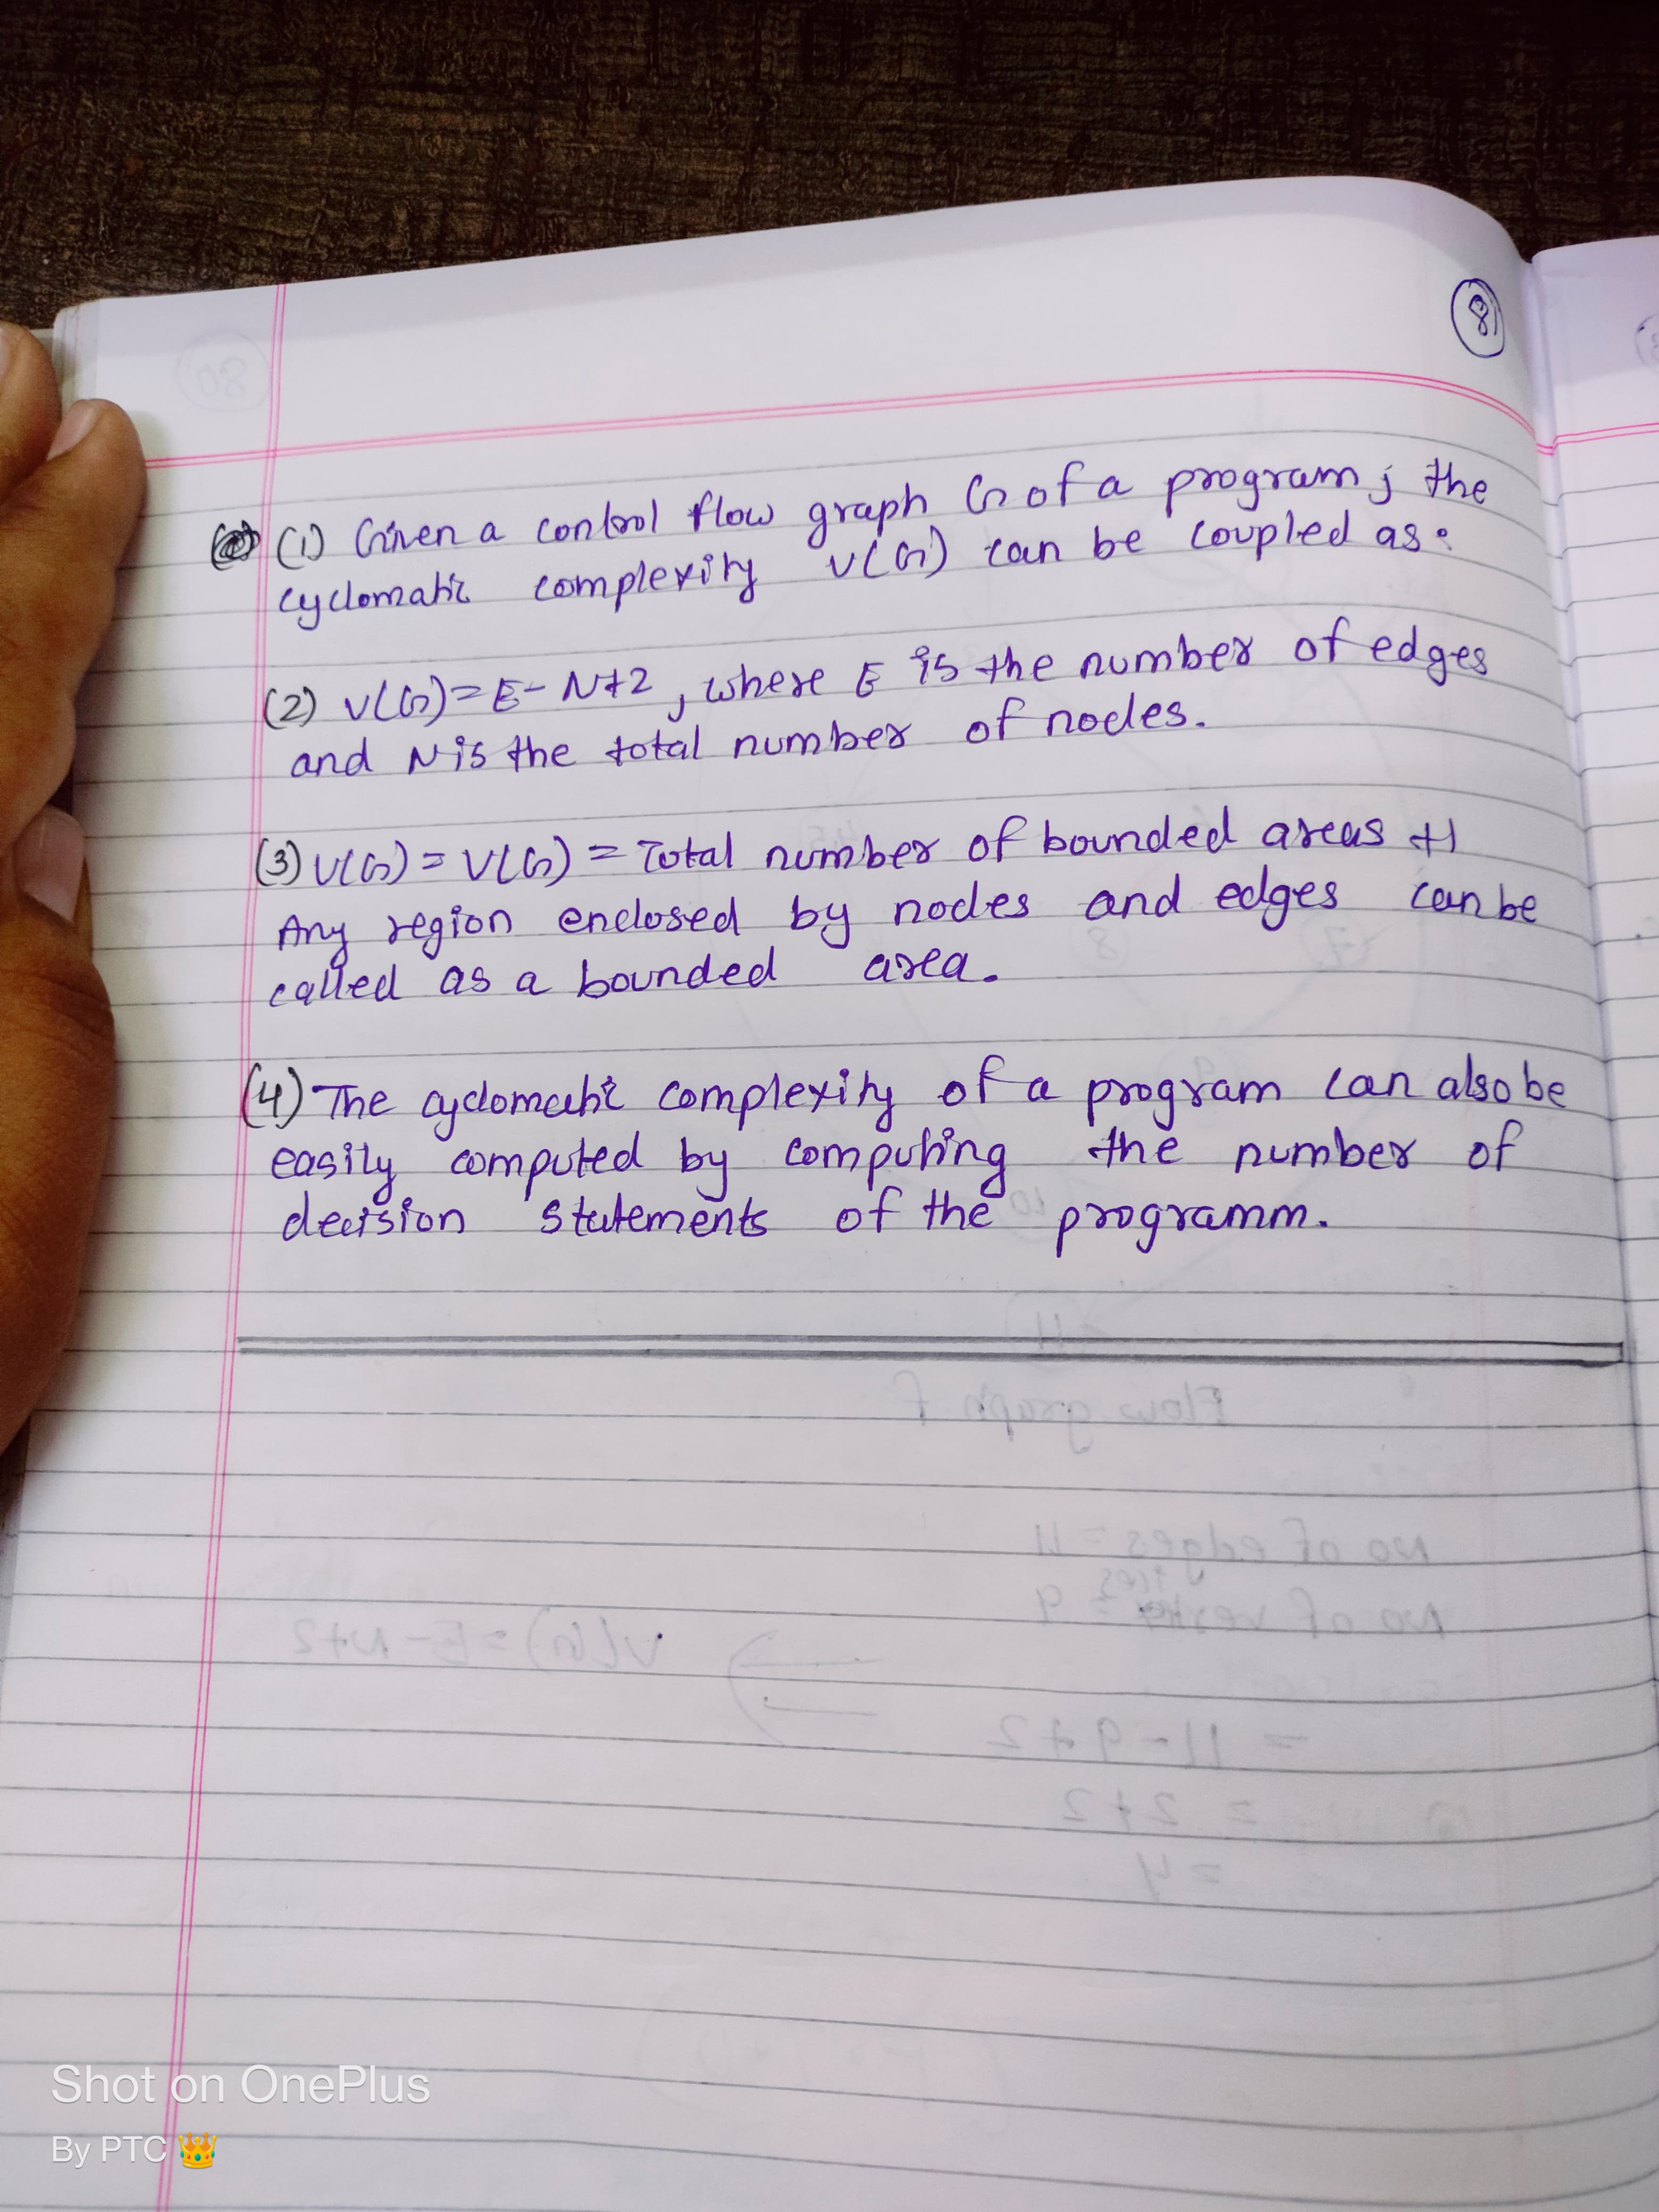 81
(1) Given a control flow graph G of a program; the
cyclomatic complexity V(G) can be coupled as:
(2) V(G)=E-N+2, where E is the number of edges
and N is the total number of nodes.
(3) V(G) = V(G) = Total number of bounded areas +1
Any region enclosed by nodes and edges can be
called as a bounded area.
(4) The cyclomatic complexity of a program can also be
easily computed by computing the number of
decision statements of the programm.
Shot on OnePlus
By PTC 👑